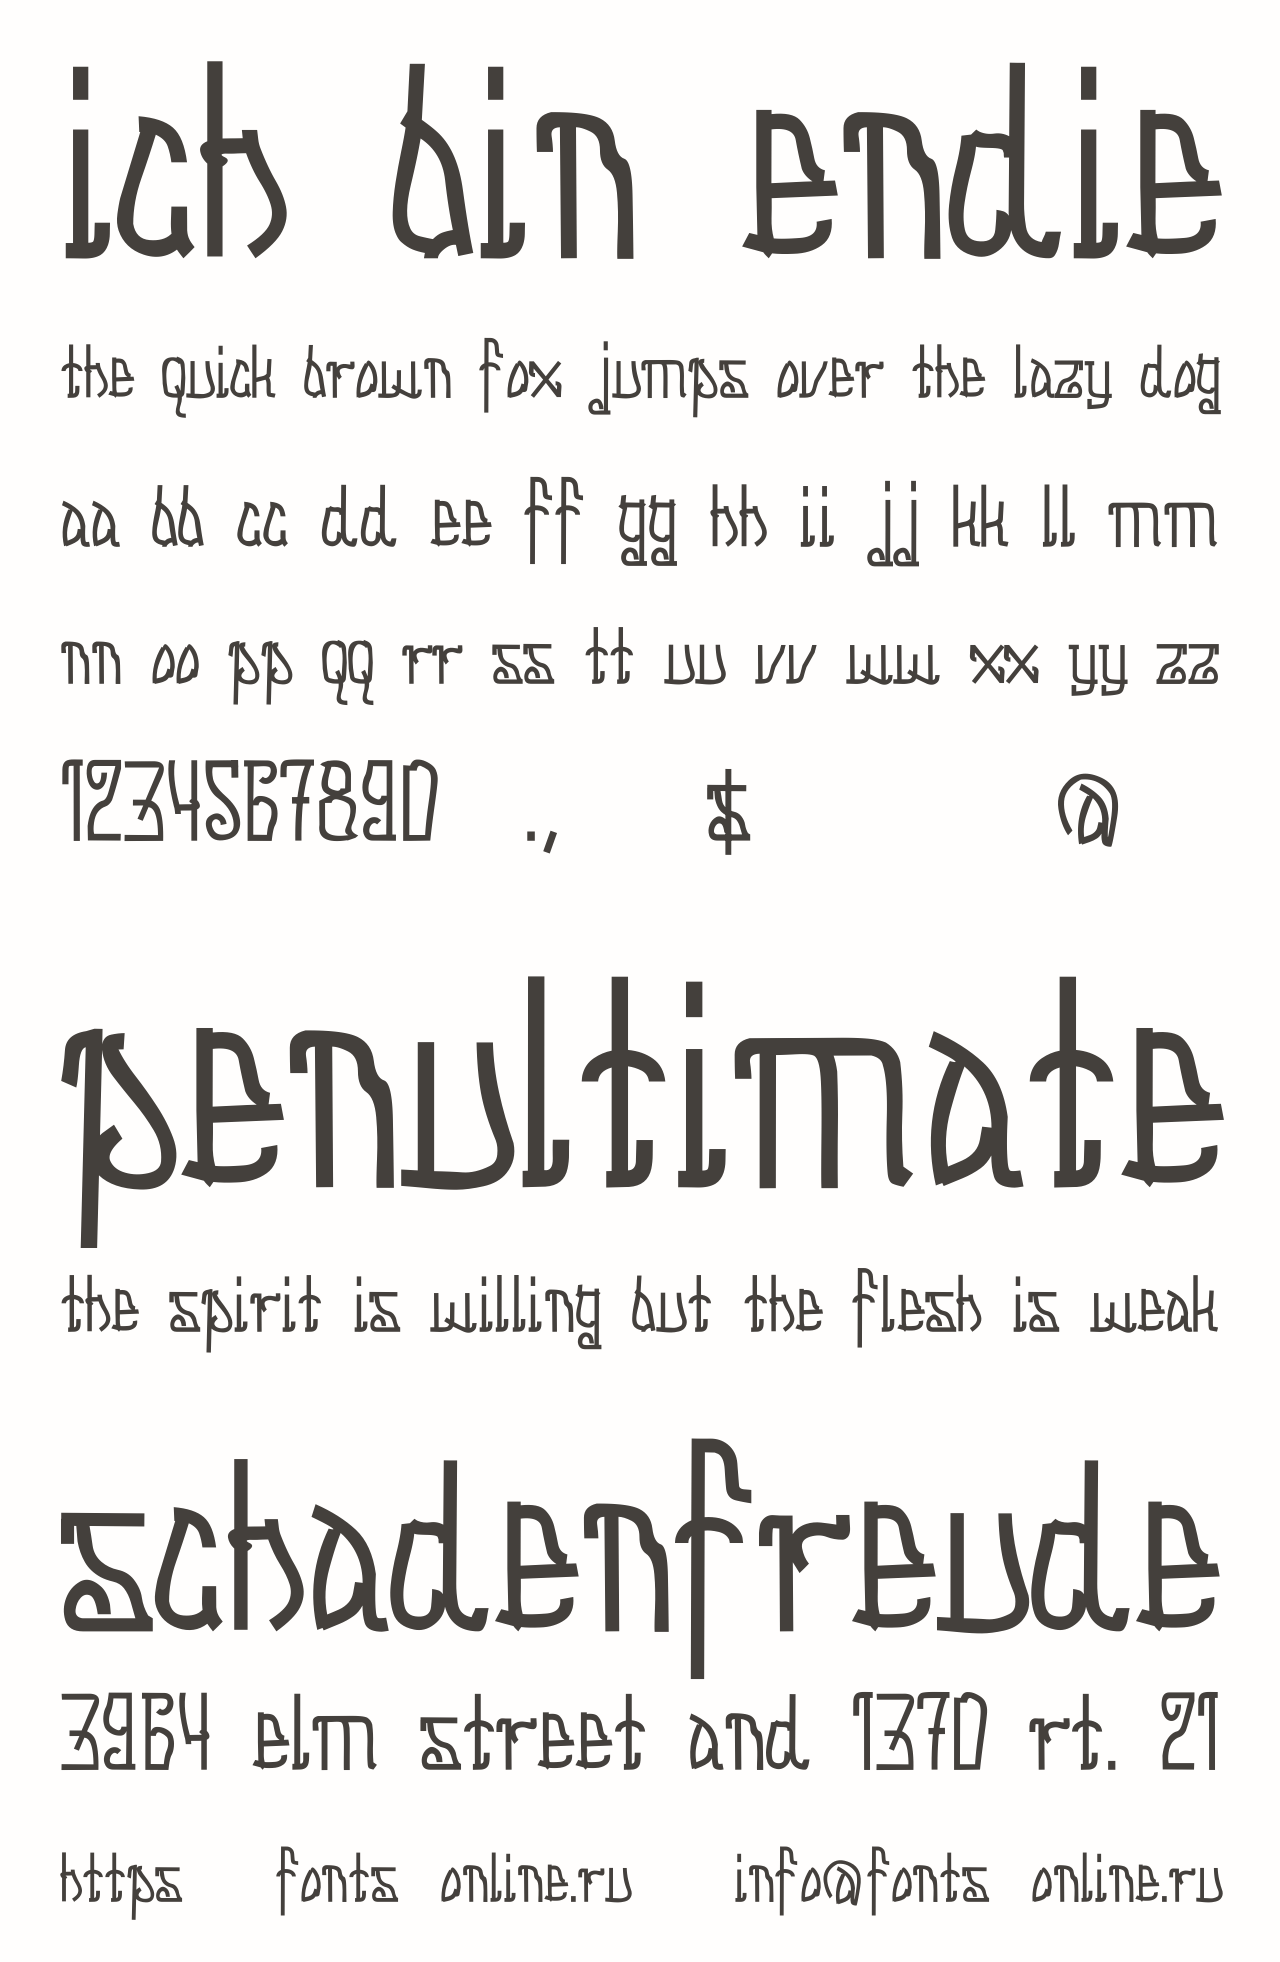 ich bin endie
the quick brown fox jumps over the lazy dog
aa bb cc dd ee ff gg hh ii jj kk ll mm
nn oo pp qq rr ss tt uu vv ww xx yy zz
1234567890 ., $ @
penultimate
the spirit is willing but the flesh is weak
schadenfreude
3964 elm street and 1370 rt. 21
https fonts online.ru info@fonts online.ru